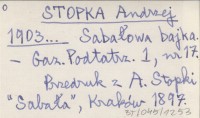 STOPKA Andrzej
1903... Sabałowa bajka.
– Gaz. Podtatrz. 1, nr 17.
Przedruk z A. Stopki
"Sabała", Kraków 1897.